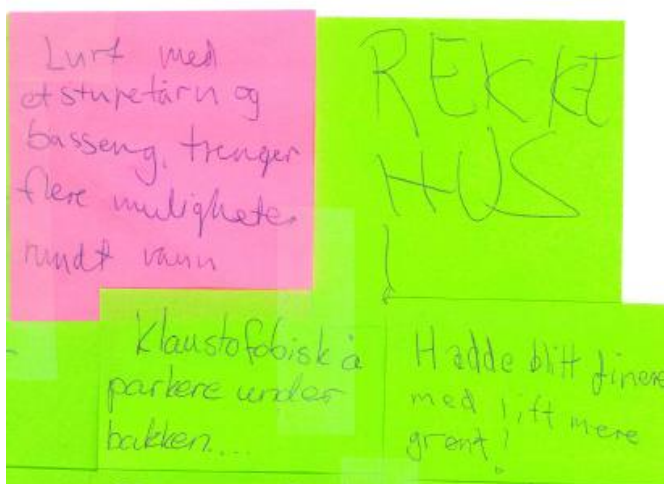 Lurt med
et stupetårn og
basseng, trenger
flere muligheter
rundt vann
REKKE
HUS
!
Klaustofobisk å
parkere under
bakken....
Hadde blitt finere
med litt mere
grønt!